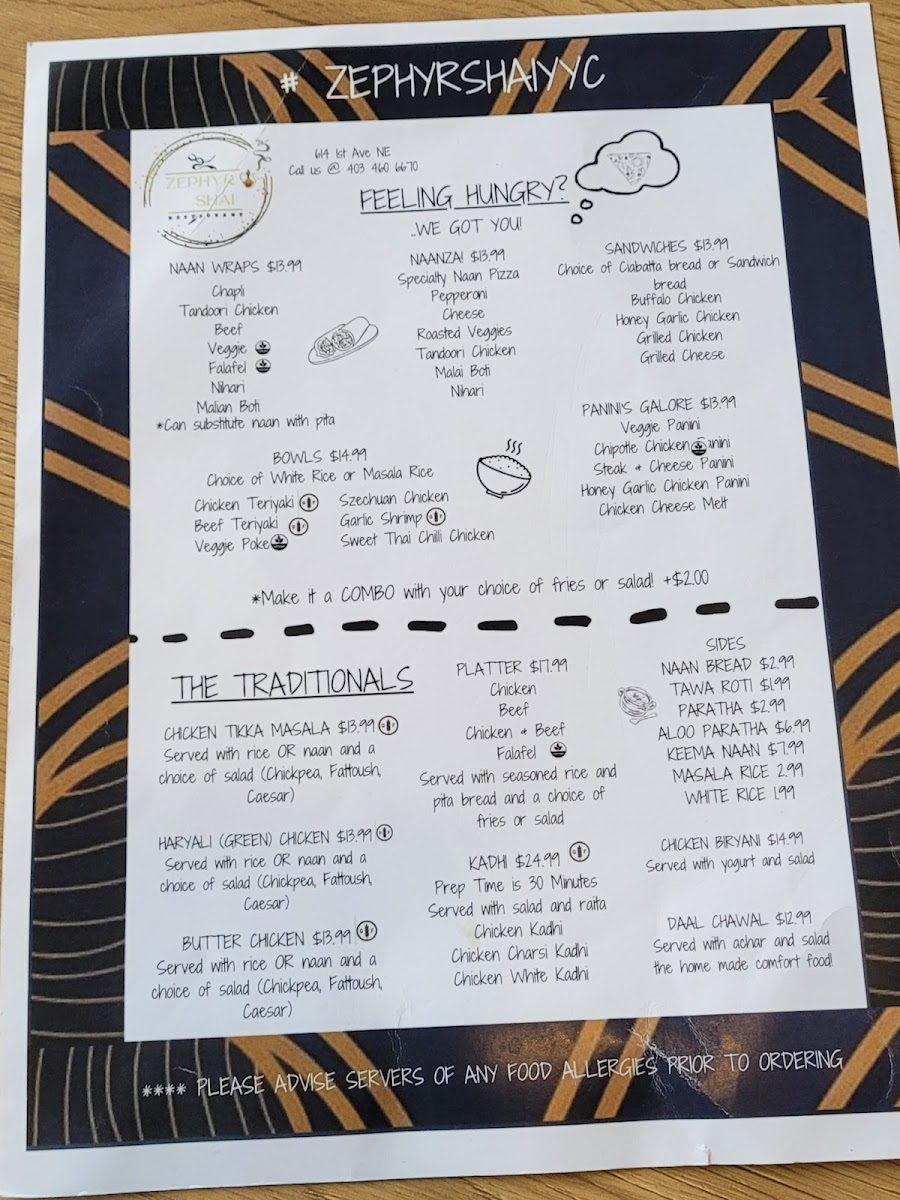 # ZEPHYRSHAIYYC
ZEPHYR
SHAI
RESTAURANT
614 1st Ave NE
Call us @ 403 460 6670
FEELING HUNGRY?
..WE GOT YOU!
NAAN WRAPS $13.99
Chapli
Tandoori Chicken
Beef
Veggie
Falafel
Nihari
Malian Boti
*Can substitute naan with pita
NAANZA! $13.99
Specialty Naan Pizza
Pepperoni
Cheese
Roasted Veggies
Tandoori Chicken
Malai Boti
Nihari
SANDWICHES $13.99
Choice of Ciabatta bread or Sandwich
bread
Buffalo Chicken
Honey Garlic Chicken
Grilled Chicken
Grilled Cheese
PANINI'S GALORE $13.99
Veggie Panini
Chipotle Chicken Panini
Steak + Cheese Panini
Honey Garlic Chicken Panini
Chicken Cheese Melt
BOWLS $14.99
Choice of White Rice or Masala Rice
Chicken Teriyaki
Beef Teriyaki
Veggie Poke
Szechuan Chicken
Garlic Shrimp
Sweet Thai Chilli Chicken
*Make it a COMBO with your choice of fries or salad! +$2.00
THE TRADITIONALS
CHICKEN TIKKA MASALA $13.99
Served with rice OR naan and a
choice of salad (Chickpea, Fattoush,
Caesar)
HARYALI (GREEN) CHICKEN $13.99
Served with rice OR naan and a
choice of salad (Chickpea, Fattoush,
Caesar)
BUTTER CHICKEN $13.99
Served with rice OR naan and a
choice of salad (Chickpea, Fattoush,
Caesar)
PLATTER $17.99
Chicken
Beef
Chicken + Beef
Falafel
Served with seasoned rice and
pita bread and a choice of
fries or salad
KADHI $24.99
Prep Time is 30 Minutes
Served with salad and raita
Chicken Kadhi
Chicken Charsi Kadhi
Chicken White Kadhi
SIDES
NAAN BREAD $2.99
TAWA ROTI $1.99
PARATHA $2.99
ALOO PARATHA $6.99
KEEMA NAAN $7.99
MASALA RICE 2.99
WHITE RICE 1.99
CHICKEN BIRYANI $14.99
Served with yogurt and salad
DAAL CHAWAL $12.99
Served with achar and salad
the home made comfort food!
**** PLEASE ADVISE SERVERS OF ANY FOOD ALLERGIES PRIOR TO ORDERING